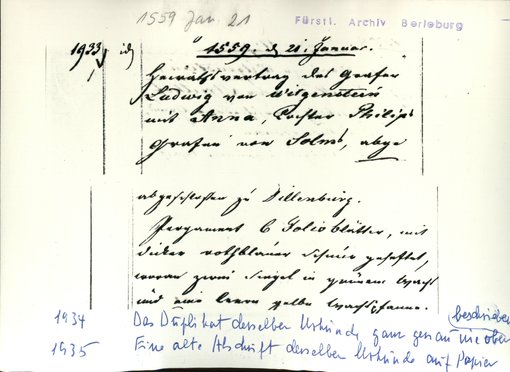 1559 Jan. 21
Fürstl. Archiv Berleburg
1933 1559. d. 21. Januar.
Heirathsvertrag des Grafen
Ludwig von Witgenstein
mit Anna, Tochter Philips
Grafen von Solms, abge
abgeschlossen zu Dillenburg.
Pergament 6 Folioblätter, mit
dicker rothblauer Schnur geheftet,
woran zwei Siegel in grünem Wachs
und eine leere gelbe Wachspfanne.
1934 Das Duplikat derselben Urkunde, ganz genau wie oben beschrieben
1935 Eine alte Abschrift derselben Urkunde auf Papier